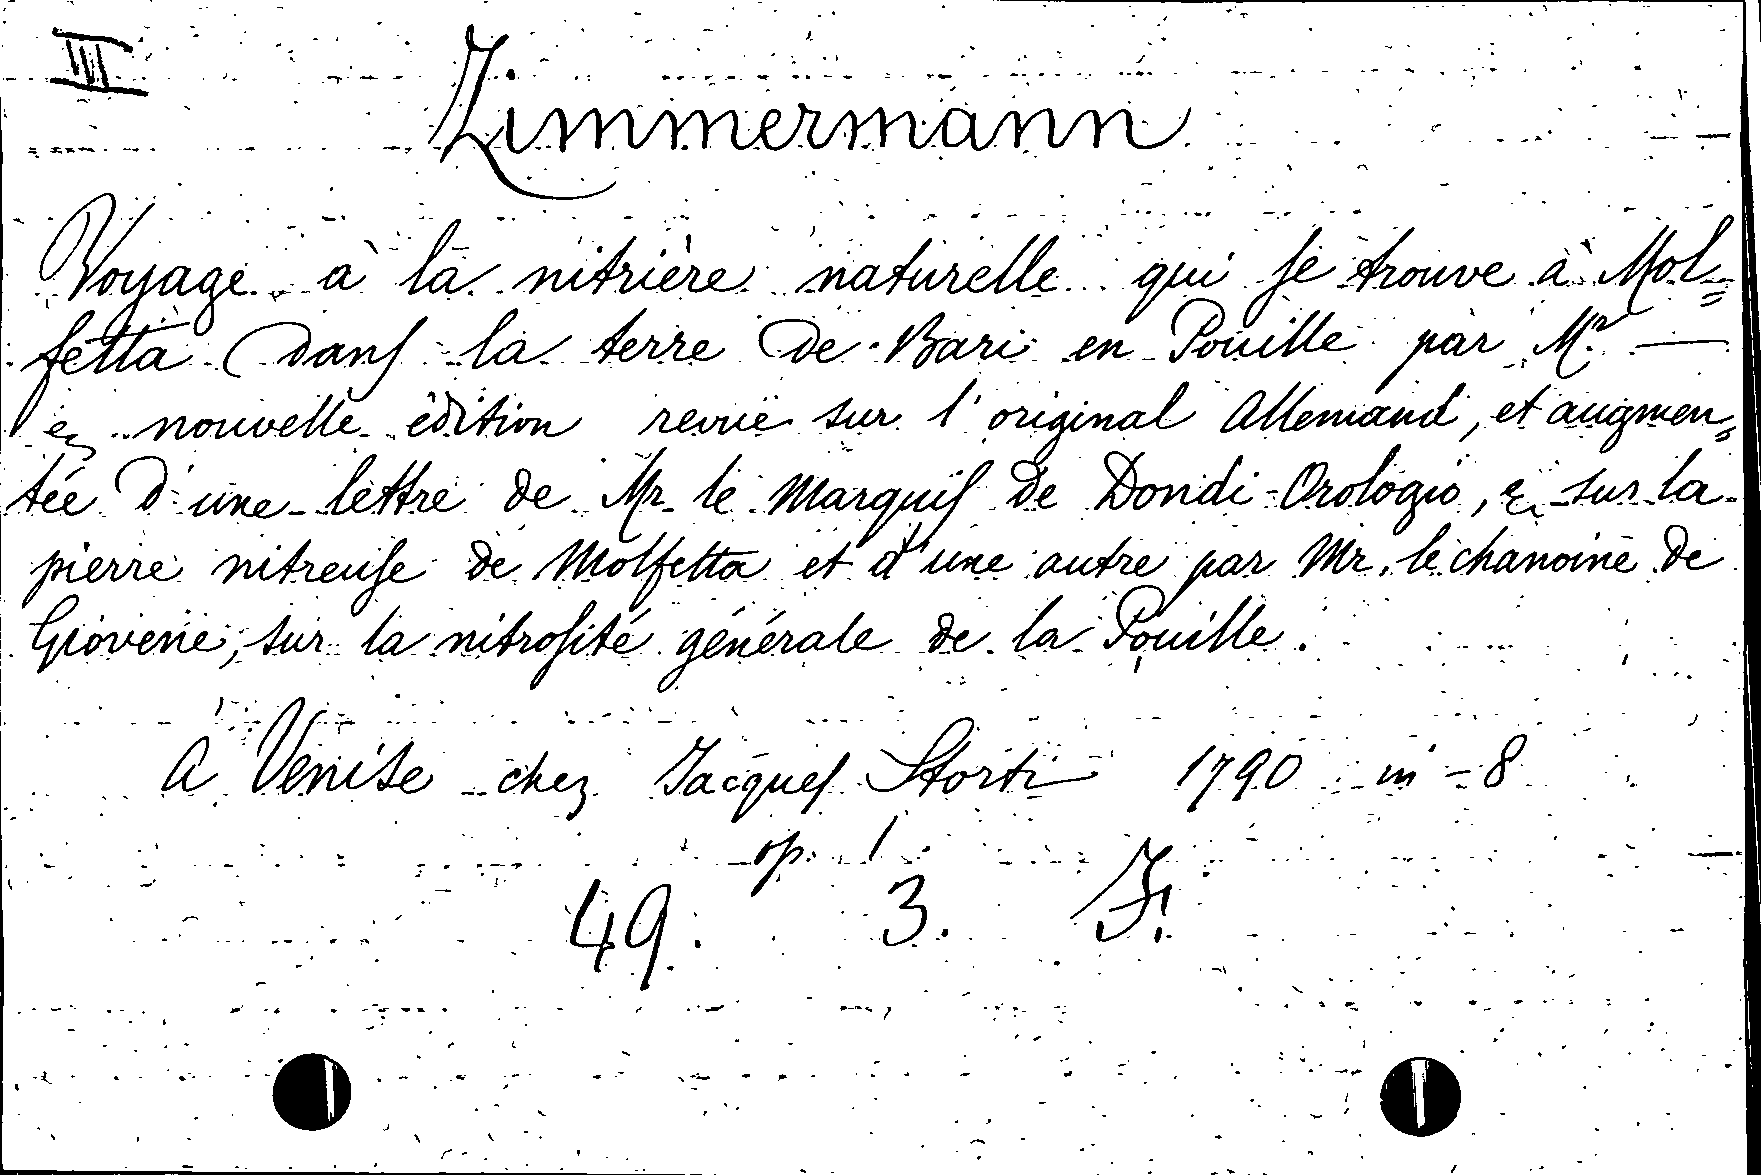 III
Zimmermann
Voyage à la nitrière naturelle qui se trouve à Mol=
fetta dans la terre de Bari en Pouille par Mr. —
& nouvelle édition revue sur l'original Allemand, et augmen=
tée d'une lettre de Mr le Marquis de Dondi-Orologio, & sur la
pierre nitreuse de Molfetta et d'une autre par Mr. le chanoine de
Giovene, sur la nitrosité générale de la Pouille.
A Venise chez Jacques Storti 1790 in-8
op. 1
49. 3. F.